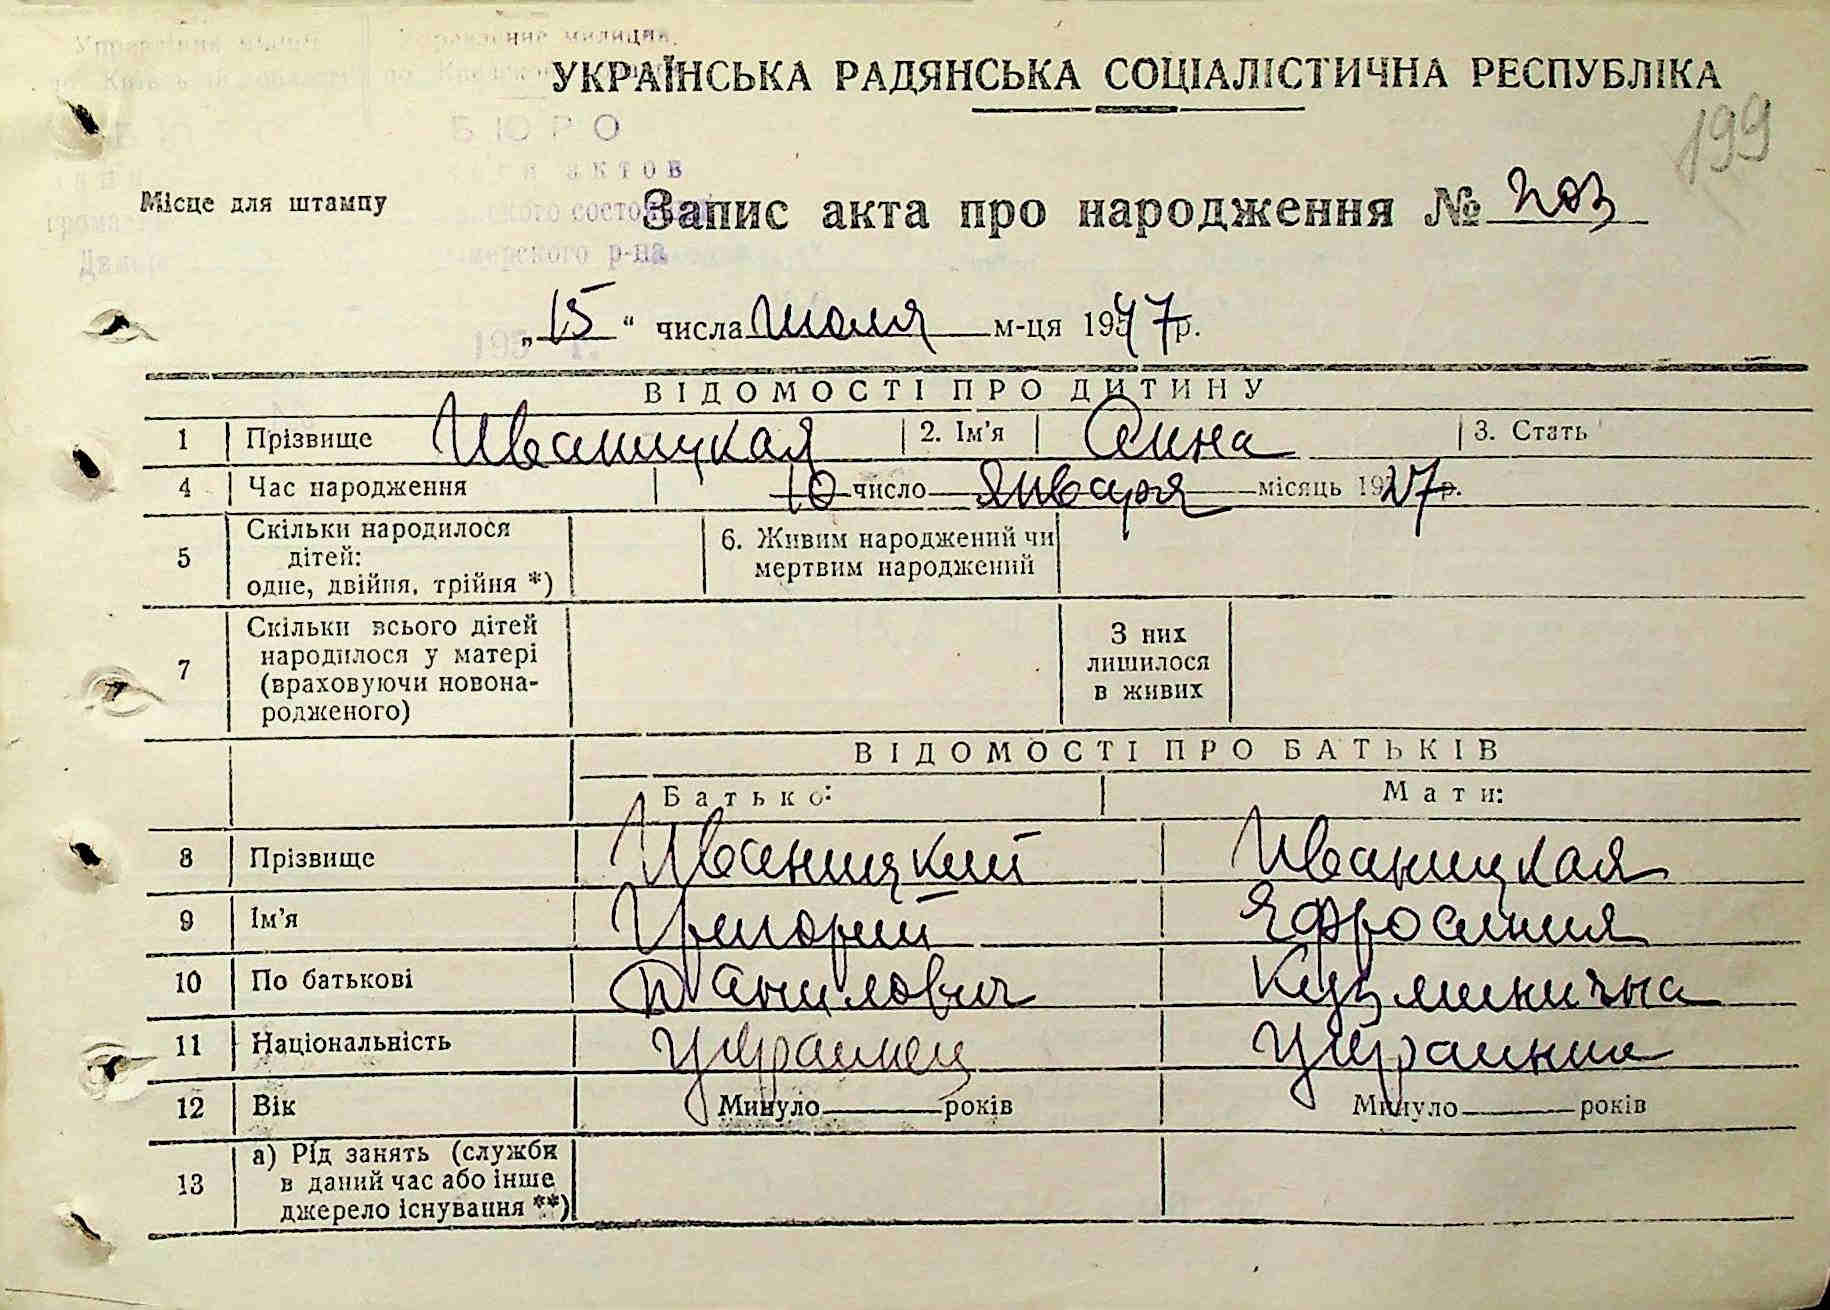 Управление милиции
БЮРО
актов
Дымерского р-на
УКРАЇНСЬКА РАДЯНСЬКА СОЦІАЛІСТИЧНА РЕСПУБЛІКА
199
Місце для штампу
Запис акта про народження № 203
„15“ числа июля м-ця 1947р.
ВІДОМОСТІ ПРО ДИТИНУ
1 Прізвище Иваницкая 2. Ім'я Анна 3. Стать
4 Час народження 10 число января місяць 1927р.
5 Скільки народилося дітей: одне, двійня, трійня *)
6. Живим народжений чи мертвим народжений
7 Скільки всього дітей народилося у матері (враховуючи новонародженого)
З них лишилося в живих
ВІДОМОСТІ ПРО БАТЬКІВ
Батько: Мати:
8 Прізвище Иваницкий Иваницкая
9 Ім'я Григорий Ефросиния
10 По батькові Данилович Кузьминична
11 Національність украинец украинка
12 Вік Минуло років Минуло років
13 а) Рід занять (служби
в даний час або інше
джерело існування **)